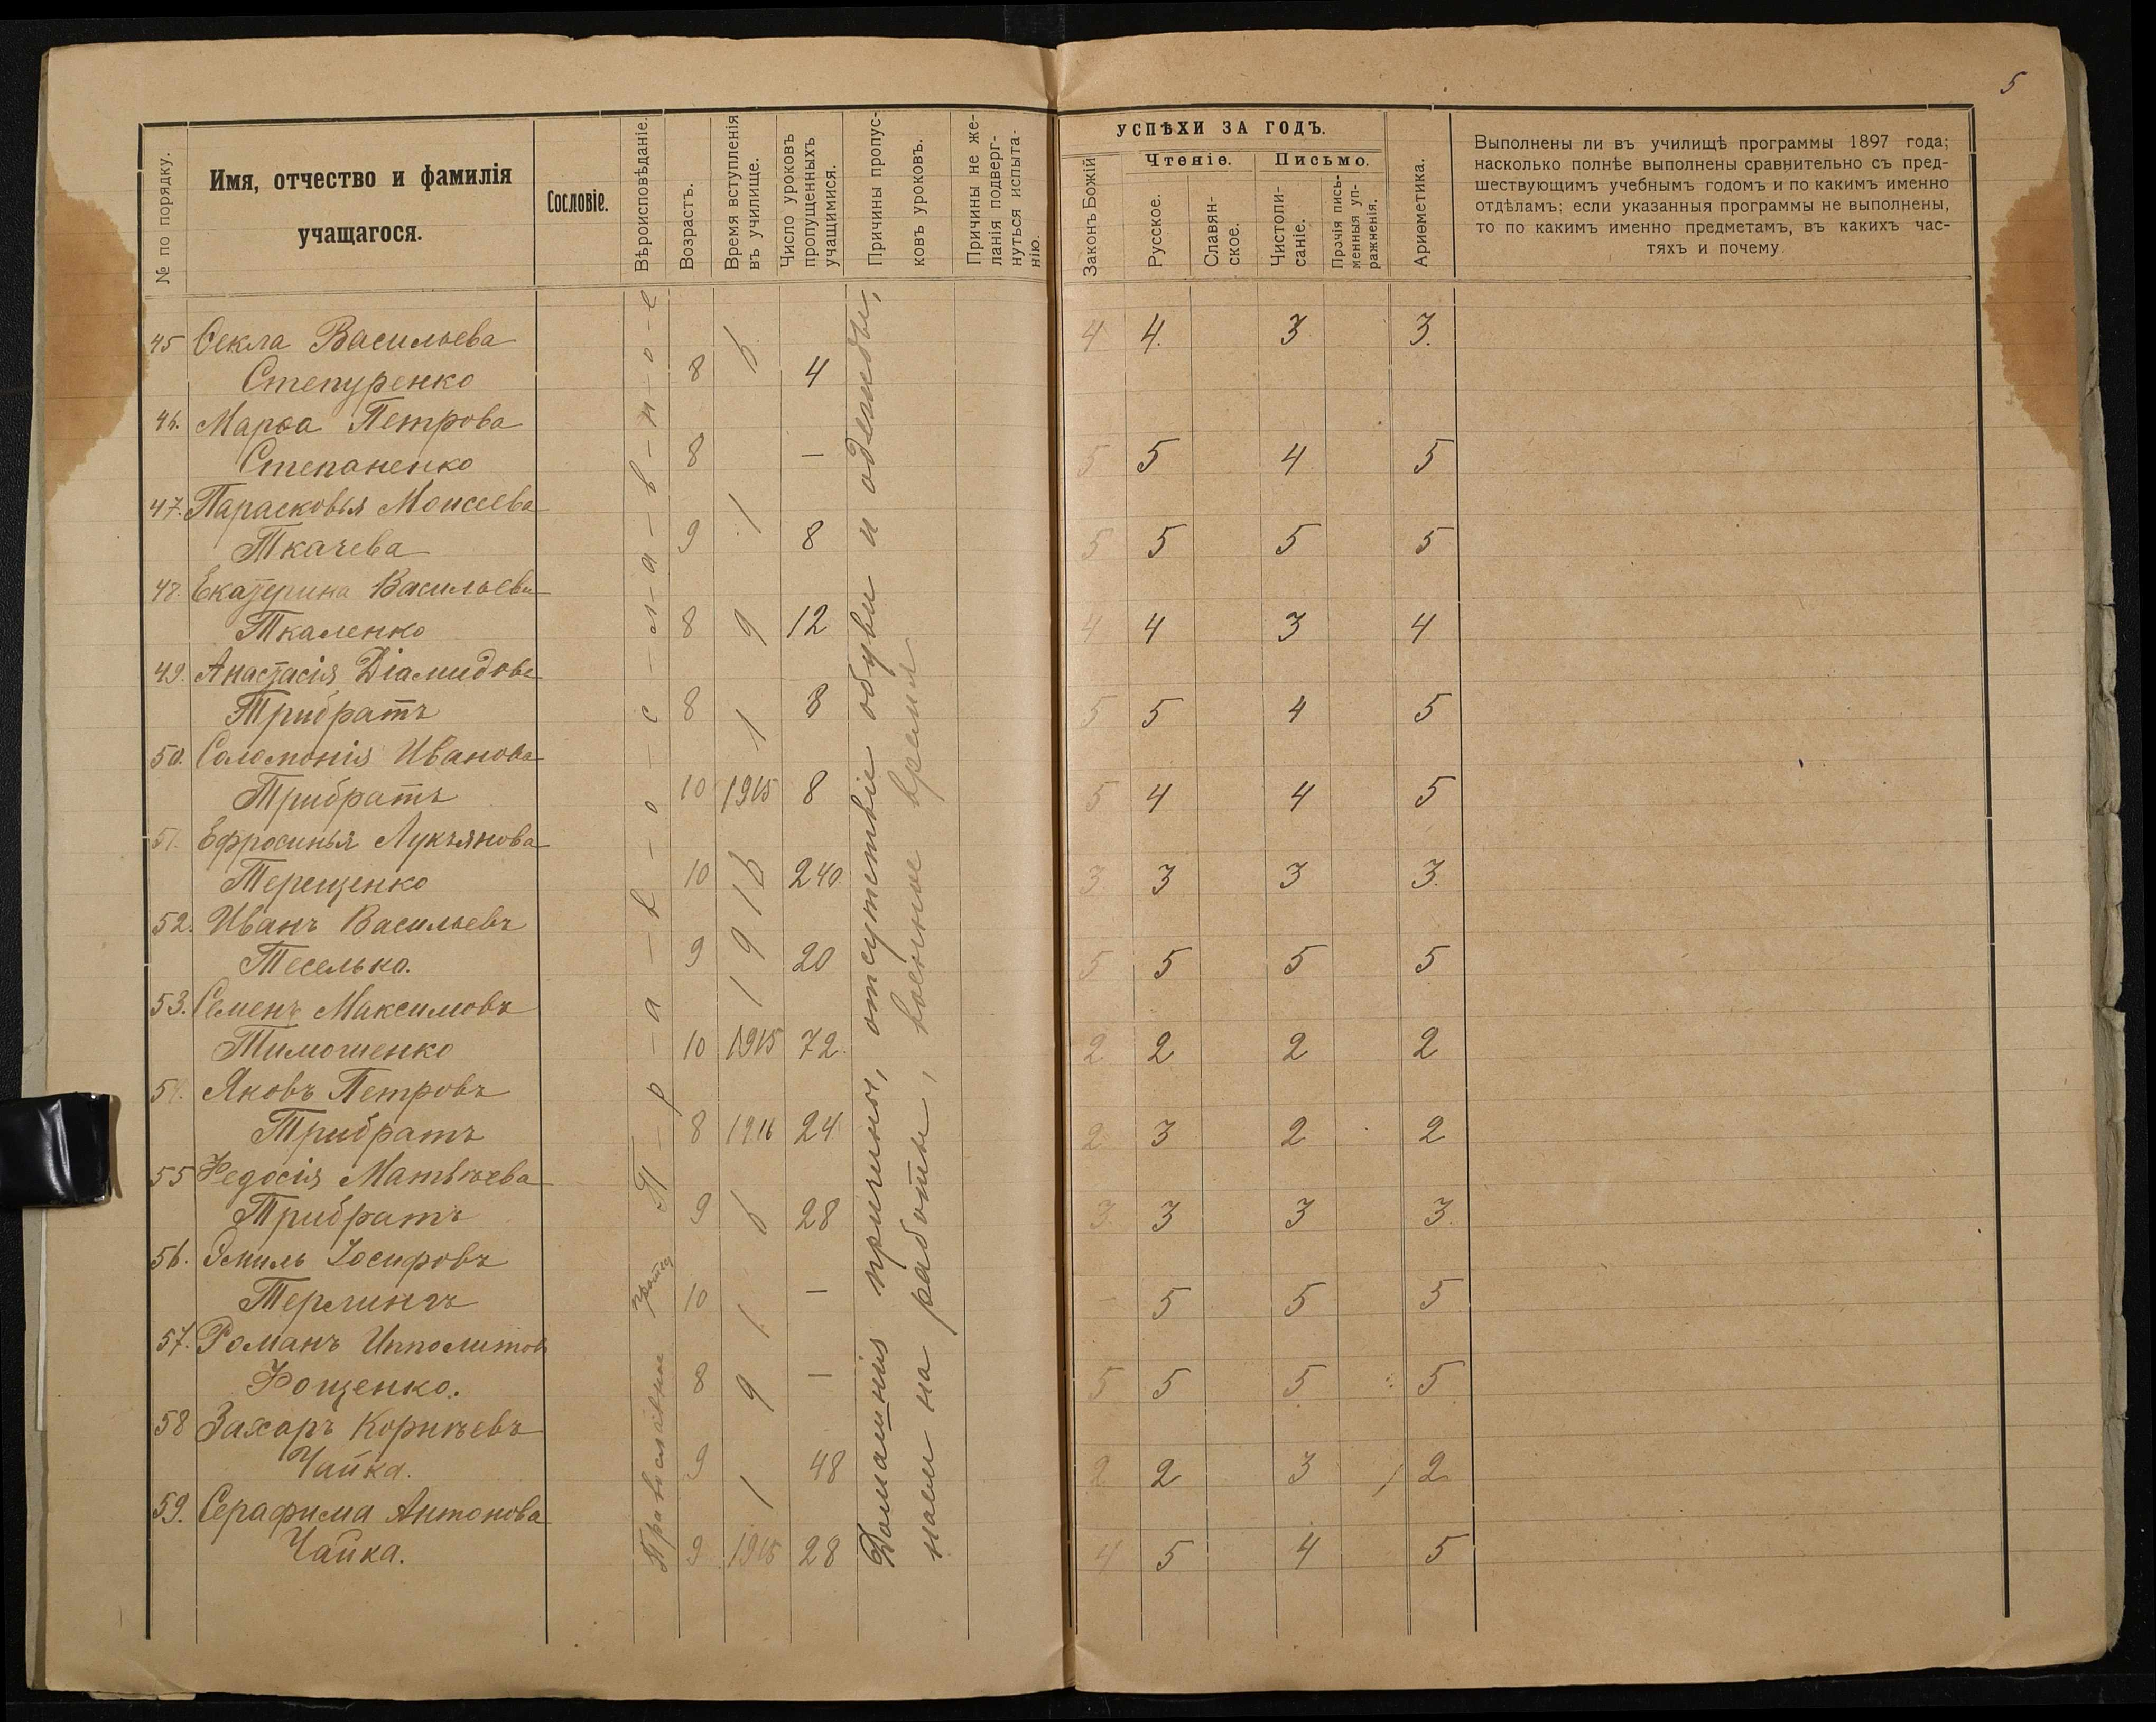 5
№ по порядку.
Имя, отчество и фамилія
учащагося.
Сословіе.
Вѣроисповѣданіе.
Возрастъ.
Время вступленія
въ училище.
Число уроковъ
пропущенныхъ
учащимися.
Причины пропус-
ковъ уроковъ.
Причины не же-
ланія подверг-
нуться испыта-
нію.
УСПѢХИ ЗА ГОДЪ.
Законъ Божій
Чтеніе.
Русское.
Славян-
ское.
Письмо.
Чистопи-
саніе.
Прочія пись-
менныя уп-
ражненія.
Ариѳметика.
Выполнены ли въ училищѣ программы 1897 года;
насколько полнѣе выполнены сравнительно съ пред-
шествующимъ учебнымъ годомъ и по какимъ именно
отдѣламъ; если указанныя программы не выполнены,
то по какимъ именно предметамъ, въ какихъ час-
тяхъ и почему.
П-р-а-в-о-с-л-а-в-н-о-е
Домашнія причины, отсутствіе обуви и одежды,
наем на работы, военное время
45 Ѳекла Васильева 4 4. 3 3.
Степуренко 8 4
46. Марѳа Петрова
Степаненко 8 — 5 5 4 5
47. Парасковья Моисеева
Ткачева 9 8 5 5 5 5
48. Екатерина Васильева
Ткаленко 8 9 12 4 4 3 4
49. Анастасія Діамидова
Трибратъ 8 1 8 5 5 4 5
50. Соломонія Иванова
Трибратъ 10 1915 8 5 4 4 5
51. Ефросинья Лукьянова
Терещенко 10 240 3 3 3 3.
52. Иванъ Васильевъ
Теселько. 9 9 20 5 5 5 5
53. Семенъ Максимовъ
Тимошенко 10 1915 72. 2 2 2 2
54. Яковъ Петровъ
Трибратъ 8 1916 24 2 3 2 2
55 Федосія Матвѣева
Трибратъ 9 6 28 3 3 3 3.
56. Эмиль Іосифовъ
10 — 5 5 5
57. Романъ Ипполитов
Фощенко. 8 9 — 5 5 5 5
58 Захаръ Корнѣевъ
Чайка. 9 48 2 2 3 2
59. Серафима Антонова
Чайка. Православное 9 1915 28 4 5 4 5